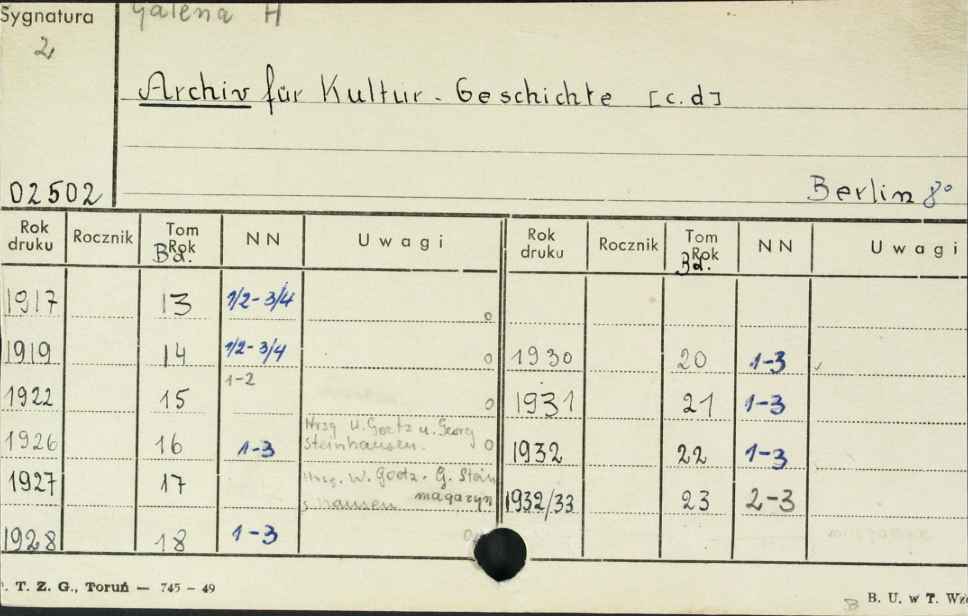 Sygnatura Galena H
2
Archiv für Kultur-Geschichte [c.d]
02502 Berlin 8°
Rok druku Rocznik Tom Rok Bd. NN Uwagi Rok druku Rocznik Tom Rok Bd. NN Uwagi
1917 13 1/2-3/4 o
1919 14 1/2-3/4 o 1930 20 1-3
1922 15 1-2 o 1931 21 1-3
1926 16 1-3 Hrsg. W. Goetz u. Georg Steinhausen. o 1932 22 1-3
1927 17 Hrsg. W. Goetz. G. Stein hausen magazyn 1932/33 23 2-3
1928 18 1-3
T. Z. G., Toruń — 745 - 49 B. U. w T.